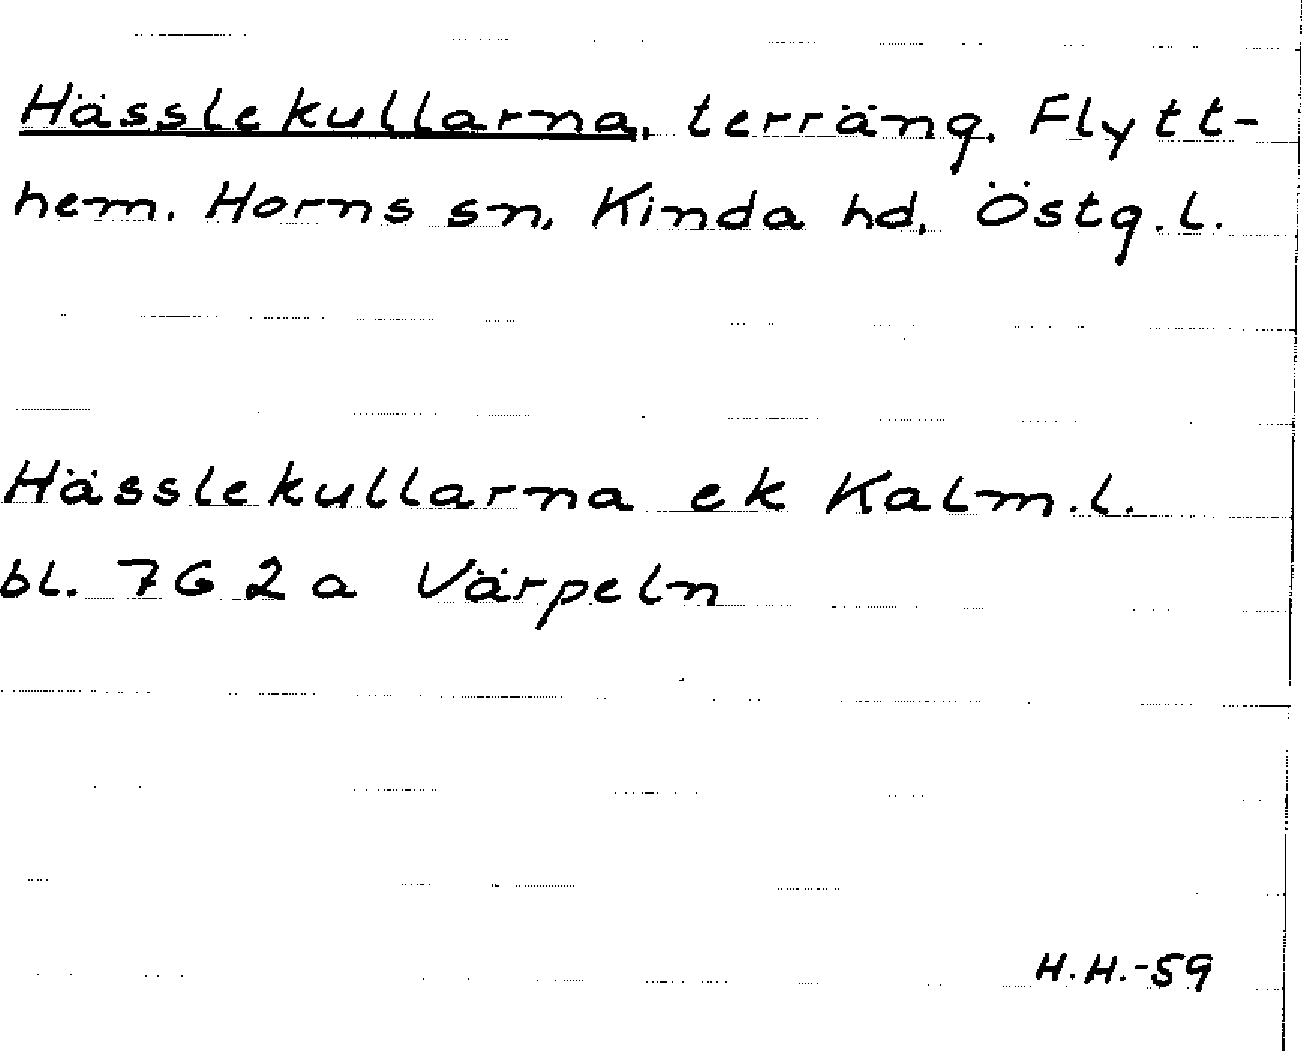 Hässlekullarna, terräng, Flytt-
hem. Horns sn, Kinda hd, Östg.l.
Hässlekullarna ek Kalm.l.
bl. 7G 2a Värpeln
H.H.-59